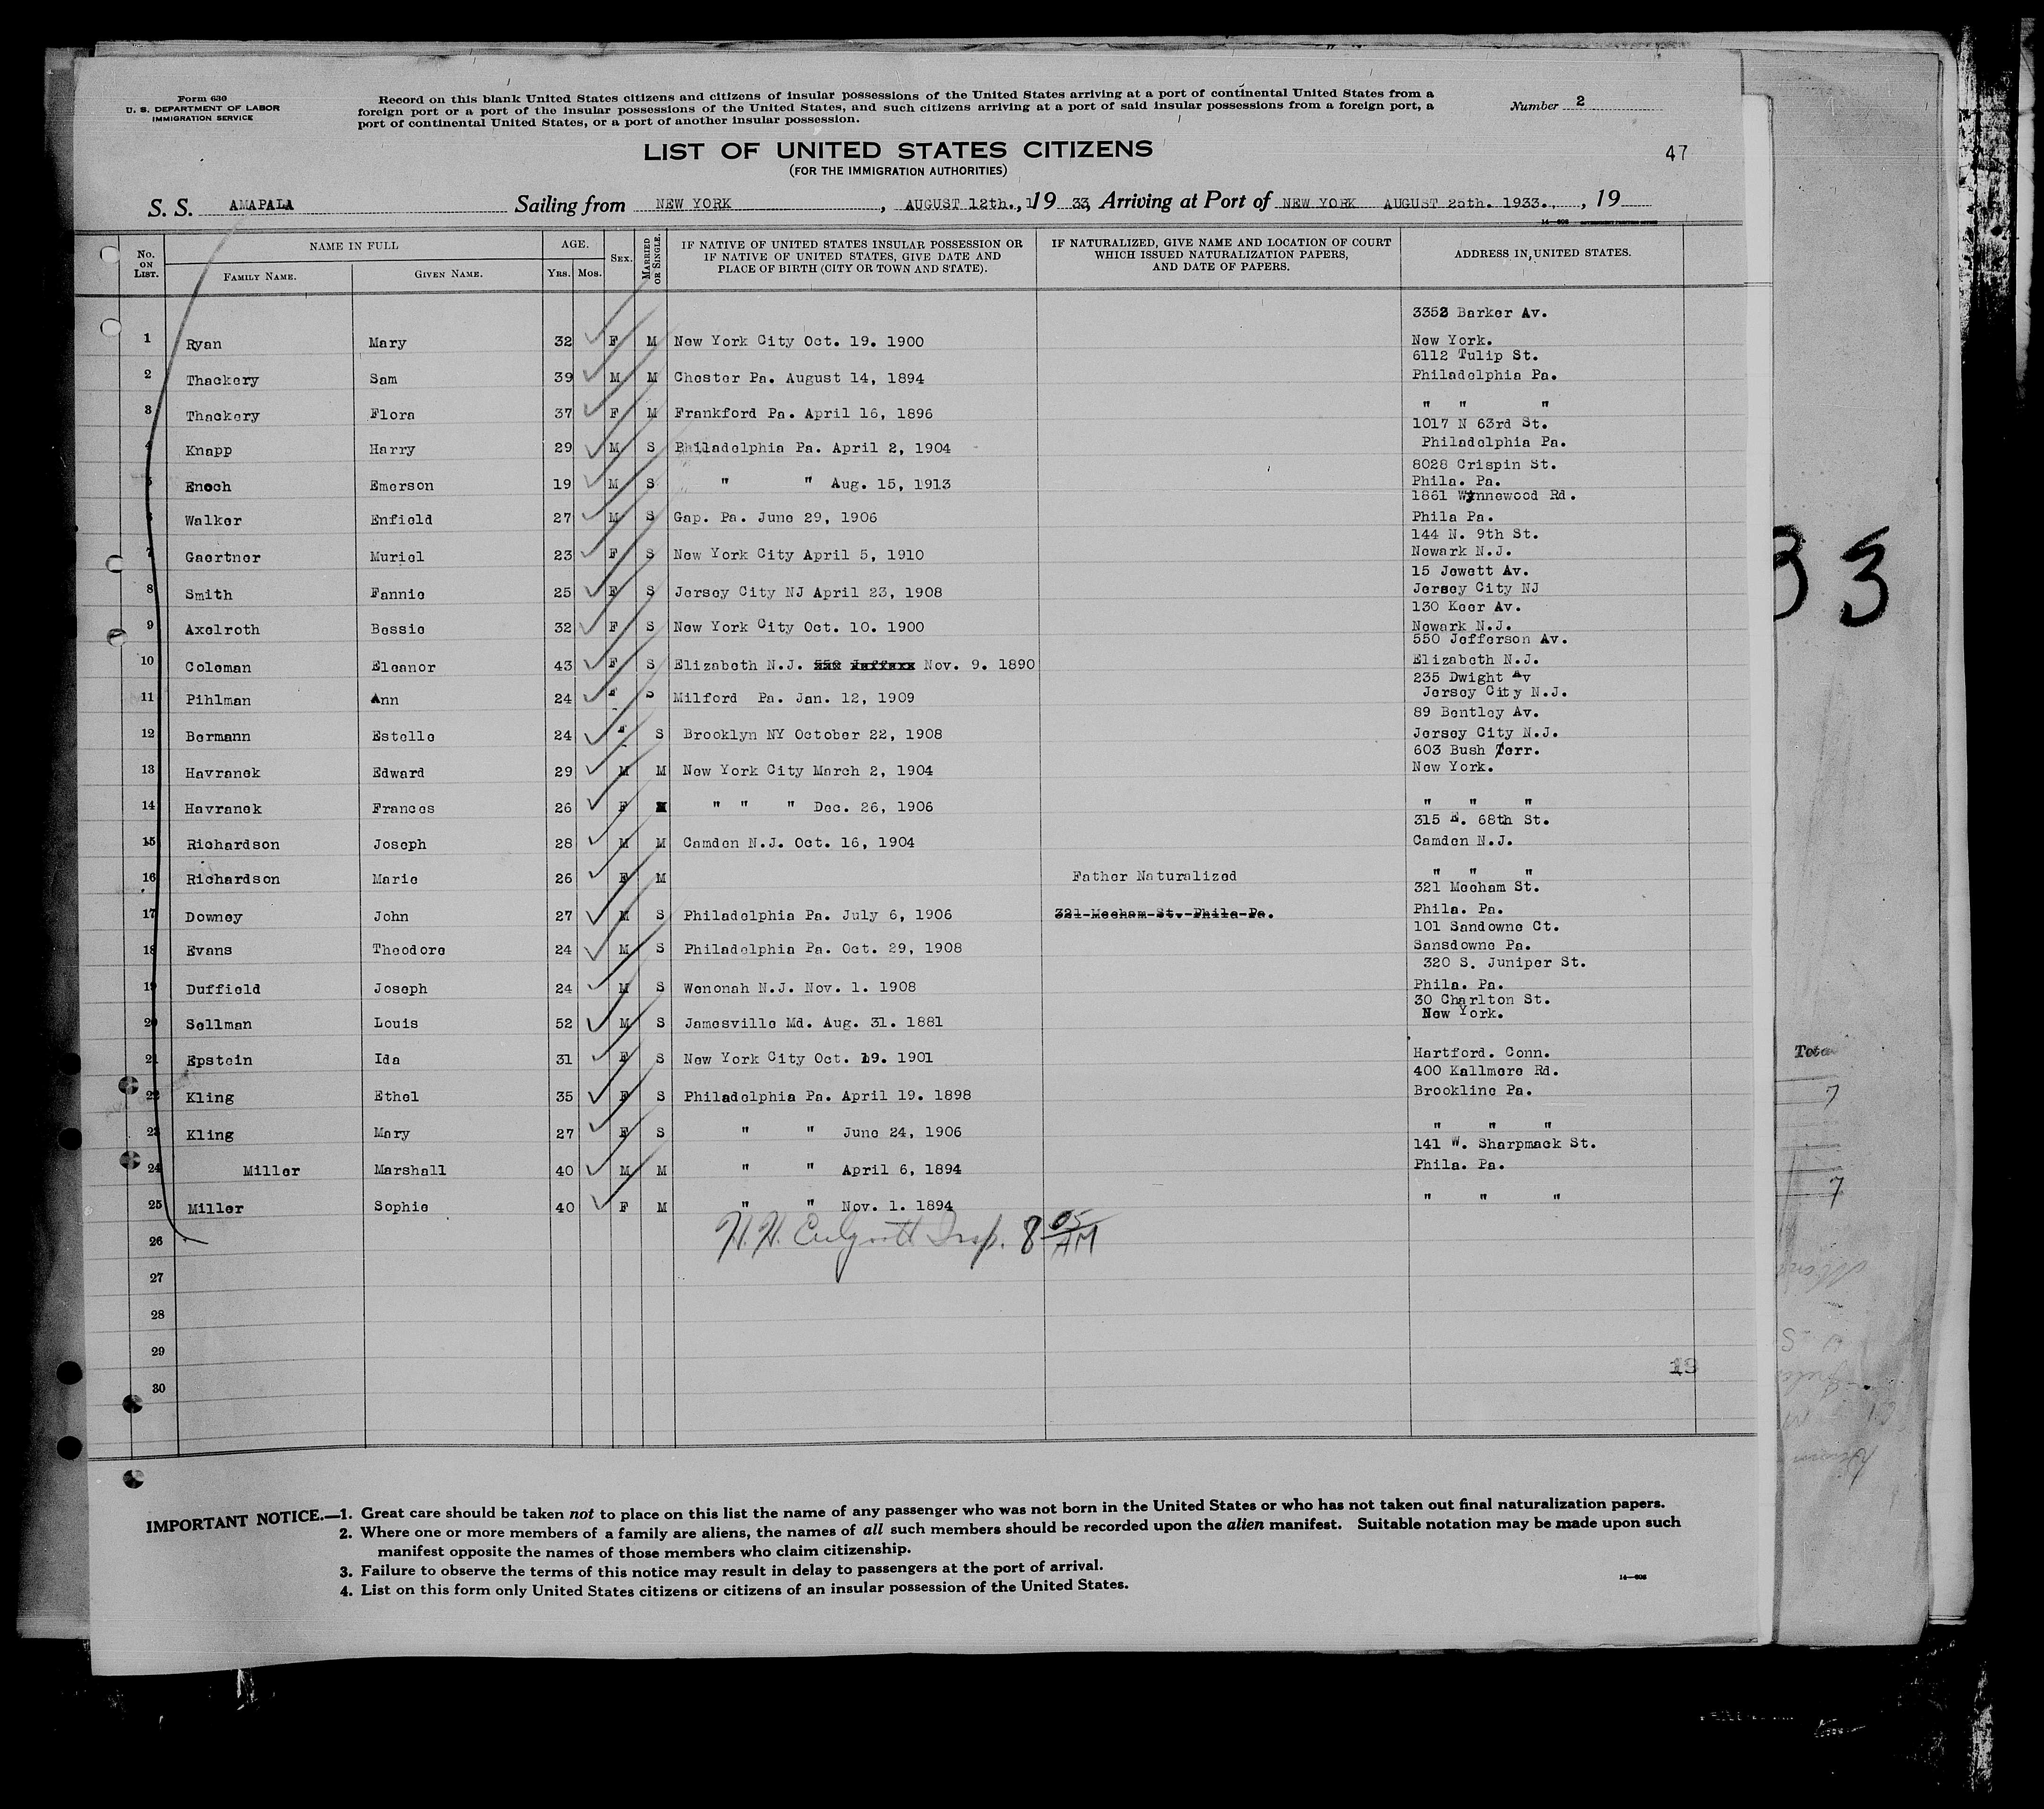 Form 630
U. S. DEPARTMENT OF LABOR
IMMIGRATION SERVICE
Record on this blank United States citizens and citizens of insular possessions of the United States arriving at a port of continental United States from a
foreign port or a port of the insular possessions of the United States, and such citizens arriving at a port of said insular possessions from a foreign port, a
port of continental United States, or a port of another insular possession.
Number 2
LIST OF UNITED STATES CITIZENS
(FOR THE IMMIGRATION AUTHORITIES)
47
S. S. AMAPALA Sailing from NEW YORK, AUGUST 12th., 1933, Arriving at Port of NEW YORK AUGUST 25th. 1933., 19
No. ON LIST. NAME IN FULL FAMILY NAME. GIVEN NAME. AGE. YRS. MOS. SEX. MARRIED OR SINGLE. IF NATIVE OF UNITED STATES INSULAR POSSESSION OR IF NATIVE OF UNITED STATES, GIVE DATE AND PLACE OF BIRTH (CITY OR TOWN AND STATE). IF NATURALIZED, GIVE NAME AND LOCATION OF COURT WHICH ISSUED NATURALIZATION PAPERS, AND DATE OF PAPERS. ADDRESS IN UNITED STATES.
3352 Barker Av.
1 Ryan Mary 32 F M New York City Oct. 19. 1900 New York.
6112 Tulip St.
2 Thackery Sam 39 M M Chester Pa. August 14, 1894 Philadelphia Pa.
3 Thackery Flora 37 F M Frankford Pa. April 16, 1896 " " "
1017 N 63rd St.
4 Knapp Harry 29 M S Philadelphia Pa. April 2, 1904 Philadelphia Pa.
8028 Crispin St.
5 Enoch Emerson 19 M S " " Aug. 15, 1913 Phila. Pa.
1861 Wynnewood Rd.
6 Walker Enfield 27 M S Gap. Pa. June 29, 1906 Phila Pa.
144 N. 9th St.
7 Gaertner Muriel 23 F S New York City April 5, 1910 Newark N.J.
15 Jewett Av.
8 Smith Fannie 25 F S Jersey City NJ April 23, 1908 Jersey City NJ
130 Keer Av.
9 Axelroth Bessie 32 F S New York City Oct. 10. 1900 Newark N.J.
550 Jefferson Av.
10 Coleman Eleanor 43 F S Elizabeth N.J. Nov. 9. 1890 Elizabeth N.J.
235 Dwight Av
11 Pihlman Ann 24 F S Milford Pa. Jan. 12, 1909 Jersey City N.J.
89 Bentley Av.
12 Bermann Estelle 24 F S Brooklyn NY October 22, 1908 Jersey City N.J.
603 Bush Terr.
13 Havranek Edward 29 M M New York City March 2, 1904 New York.
14 Havranek Frances 26 F M " " " Dec. 26, 1906 " " "
315 E. 68th St.
15 Richardson Joseph 28 M M Camden N.J. Oct. 16, 1904 Camden N.J.
16 Richardson Marie 26 F M Father Naturalized " " "
321 Mecham St.
17 Downey John 27 M S Philadelphia Pa. July 6, 1906 321-Mecham-St.-Phila-Pa. Phila. Pa.
101 Sandowne Ct.
18 Evans Theodore 24 M S Philadelphia Pa. Oct. 29, 1908 Sansdowne Pa.
320 S. Juniper St.
19 Duffield Joseph 24 M S Wenonah N.J. Nov. 1. 1908 Phila. Pa.
30 Charlton St.
20 Sellman Louis 52 M S Jamesville Md. Aug. 31. 1881 New York.
21 Epstein Ida 31 F S New York City Oct. 19. 1901 Hartford. Conn.
400 Kallmere Rd.
22 Kling Ethel 35 F S Philadelphia Pa. April 19. 1898 Brookline Pa.
23 Kling Mary 27 F S " " June 24, 1906 " " "
141 W. Sharpmack St.
24 Miller Marshall 40 M M " " April 6, 1894 Phila. Pa.
25 Miller Sophie 40 F M " " Nov. 1. 1894 " " "
26 H. H. Insp. 8 05 AM
27
28
29
30
IMPORTANT NOTICE.—1. Great care should be taken not to place on this list the name of any passenger who was not born in the United States or who has not taken out final naturalization papers.
2. Where one or more members of a family are aliens, the names of all such members should be recorded upon the alien manifest. Suitable notation may be made upon such
manifest opposite the names of those members who claim citizenship.
3. Failure to observe the terms of this notice may result in delay to passengers at the port of arrival.
4. List on this form only United States citizens or citizens of an insular possession of the United States.
33
7
7